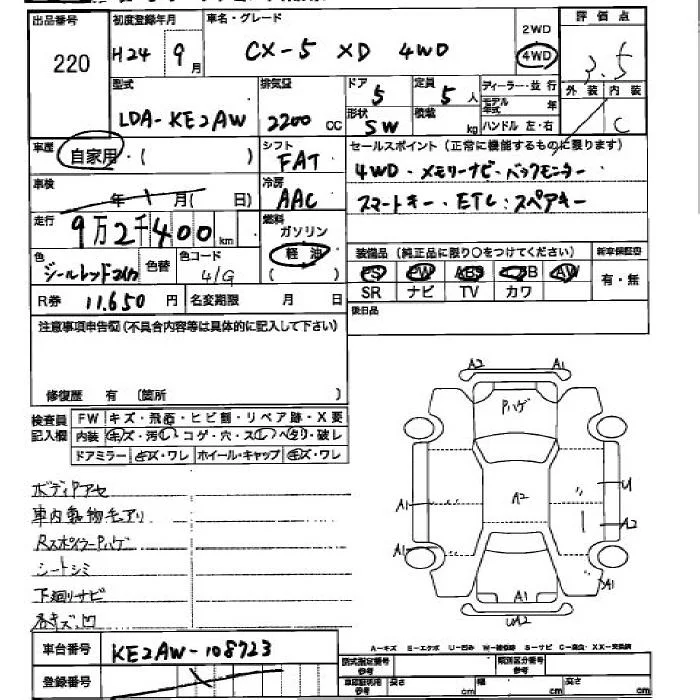 出品番号 初度登録年月 車名・グレード 評価点
220 H24 9月 CX-5 XD 4WD 2WD 4WD 3.5
外装 内装 C
型式 排気量 ドア 定員 ディーラー・並行
LDA-KE2AW 2200 CC 5 5人 モデル年式 年
形状 積載 ハンドル 左・右
SW kg
車歴 自家用・( ) シフト FAT セールスポイント(正常に機能するものに限ります)
4WD・メモリーナビ・バックモニター
車検 年 月( 日) 冷房 AAC スマートキー・ETC・スペアキー
走行 9万2千400km 燃料 ガソリン 軽油 ( )
装備品(純正品に限り○をつけてください) 新車保証書
色 色替 色コード 41G PS PW ABS AW 有・無
SR ナビ TV カワ
R券 11.650円 名変期限 月 日 後日品
注意事項申告欄(不具合内容等は具体的に記入して下さい)
修復歴 有 (箇所 )
検査員記入欄 FW キズ・飛石・ヒビ割・リペア跡・X要
内装 キズ・汚レ・コゲ・穴・スレ・ヘタリ・破レ
ドアミラー キズ・ワレ ホイール・キャップ キズ・ワレ
ボディアセ
車内動物毛アリ
RスポイラーPハゲ
シートシミ
下廻りサビ
各キズ凹
A2 A1
Pハゲ
A2
U
A1 A2
A1
A1
A1
UA2
車台番号 KE2AW-108723
登録番号
A-キズ E-エクボ U-凹み W-補修跡 S-サビ C-腐食 XX-交換済
型式指定番号 参考 類別区分番号 参考
車庫証明用 参考 長さ cm 幅 cm 高さ cm